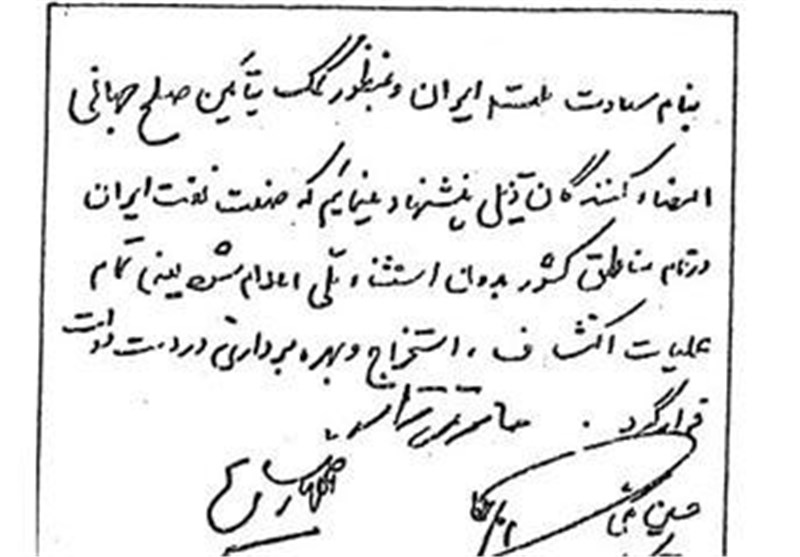 بنام سعادت ملت ایران و بمنظور کمک بتأمین صلح جهانی
امضاء کنندگان ذیل پیشنهاد مینمائیم که صنعت نفت ایران
در تمام مناطق کشور بدون استثناء ملی اعلام شود یعنی تمام
عملیات اکتشاف، استخراج و بهره برداری در دست دولت
قرار گیرد.